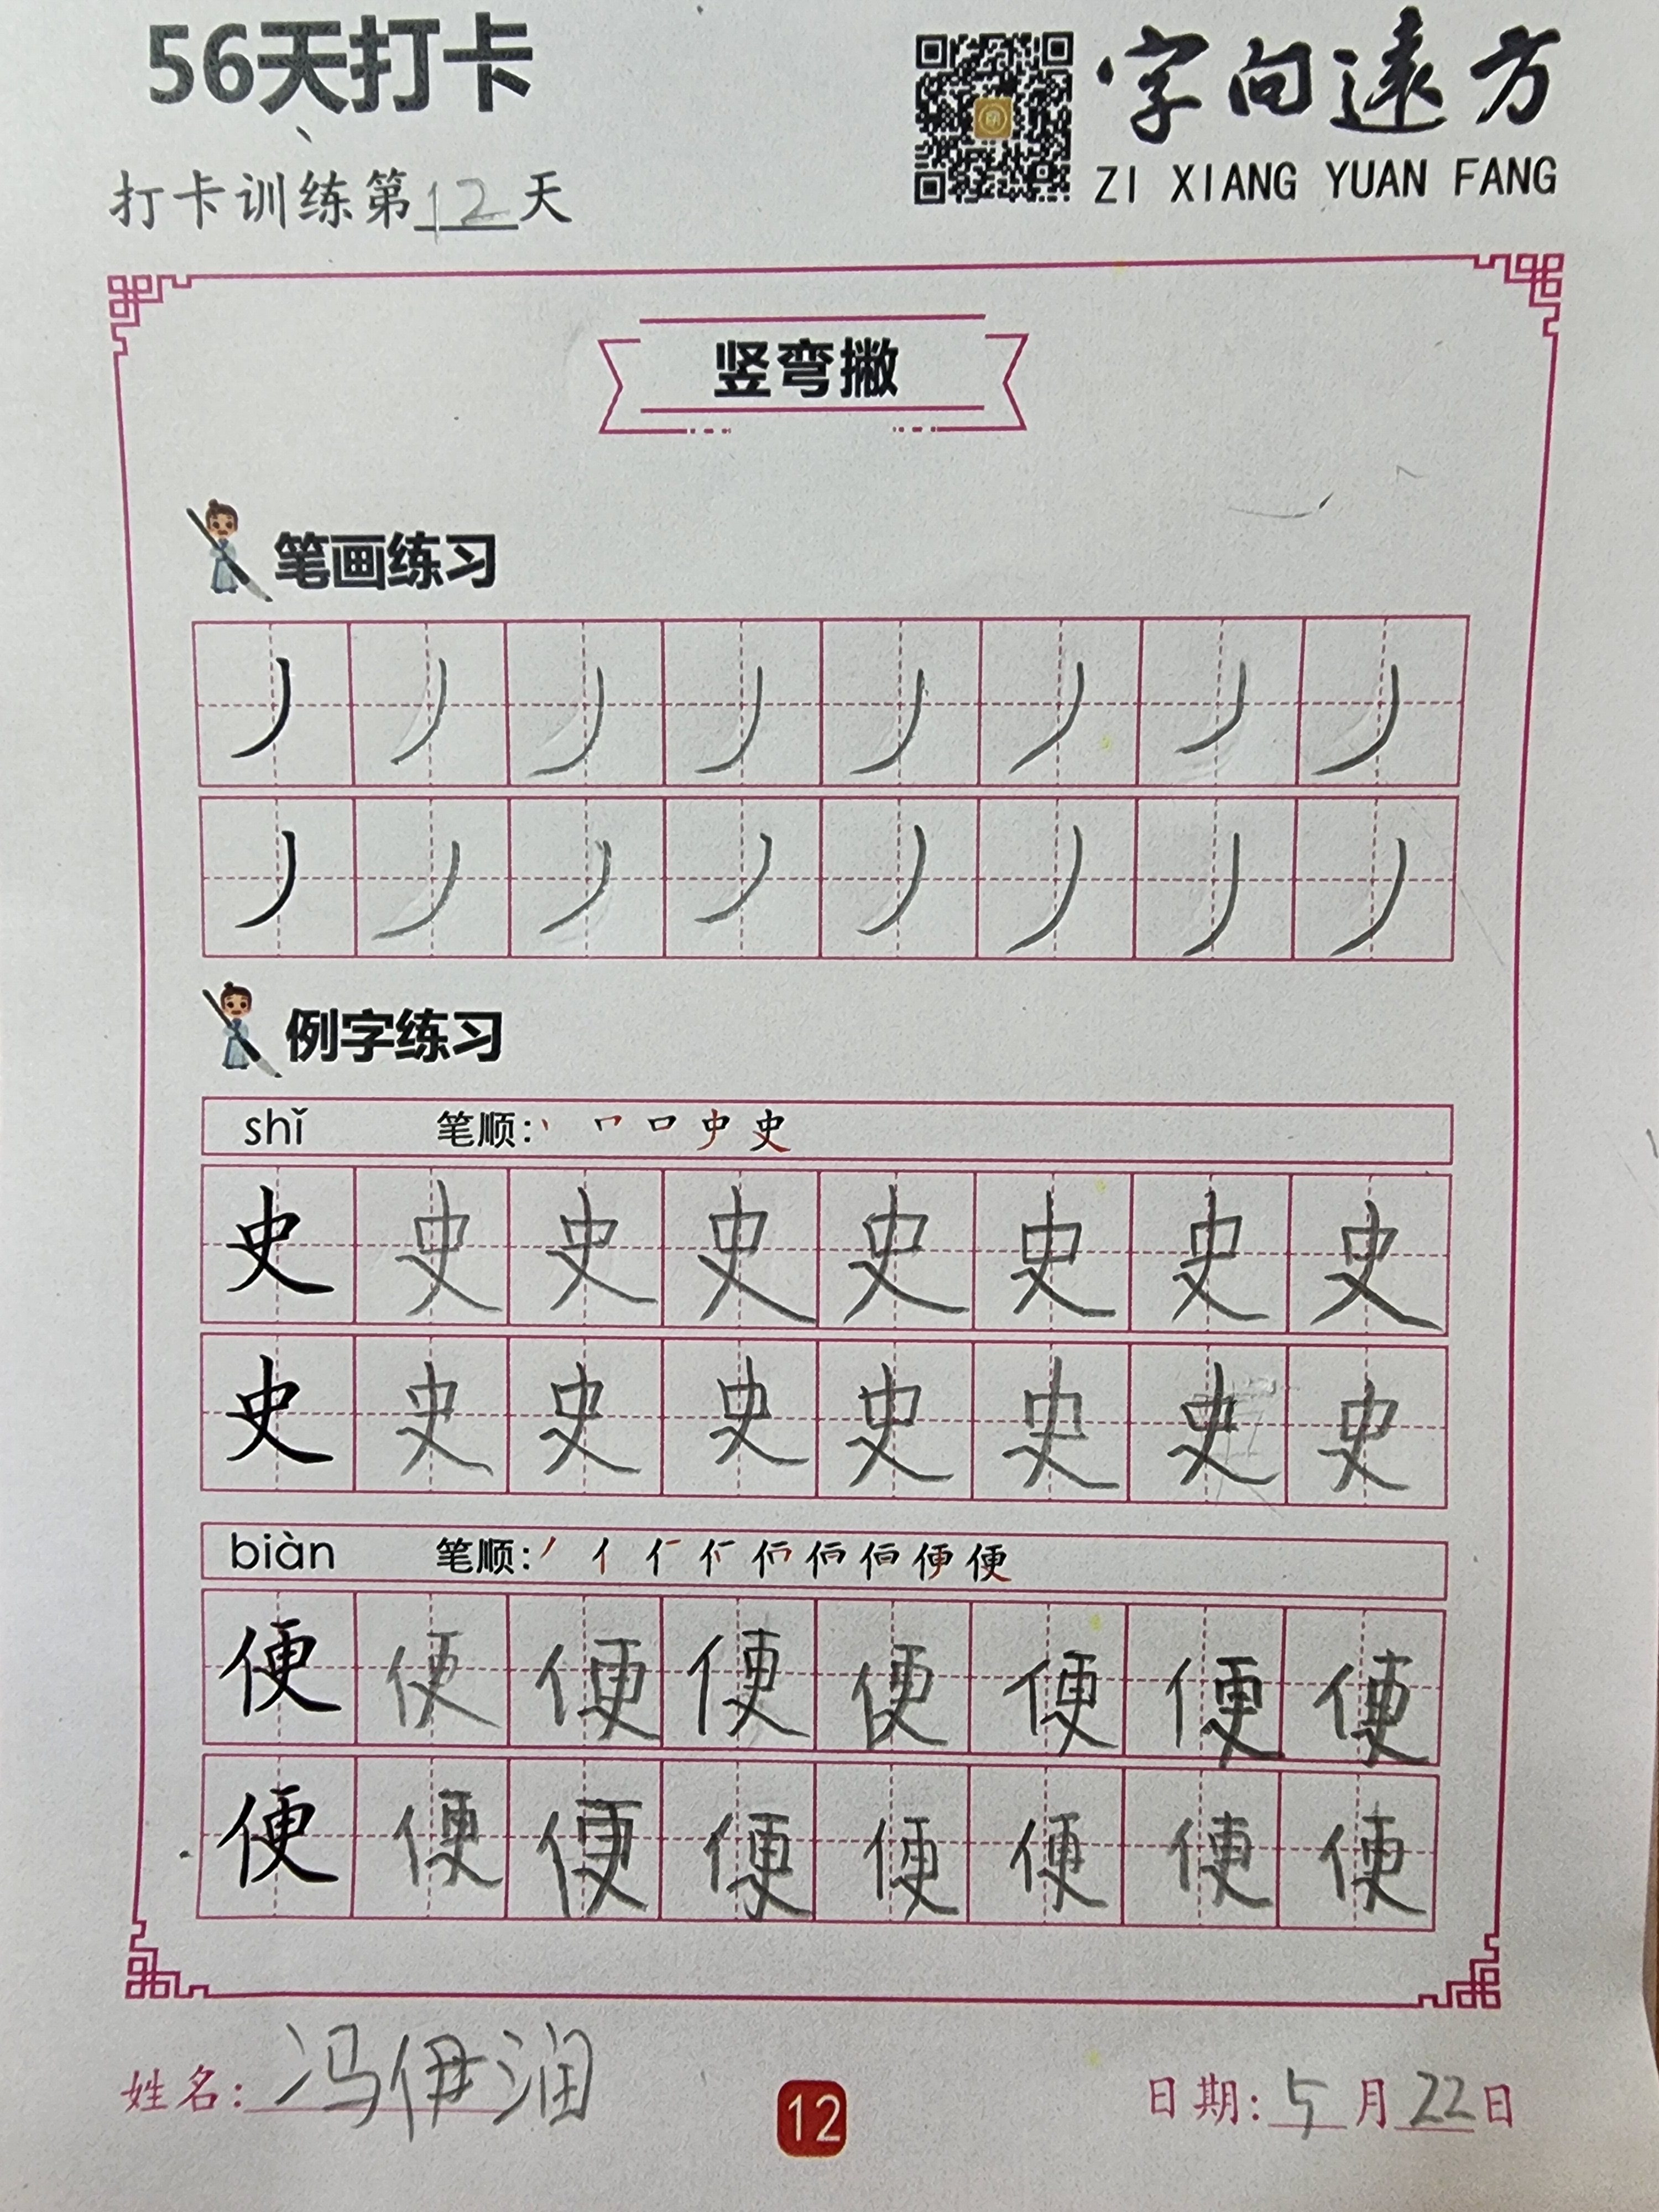 56天打卡
字向遠方
ZI XIANG YUAN FANG
打卡训练第12天
竖弯撇
笔画练习
丿 丿 丿 丿 丿 丿 丿 丿
丿 丿 丿 丿 丿 丿 丿 丿
例字练习
shǐ 笔顺: 史
史 史 史 史 史 史 史 史
史 史 史 史 史 史 史 史
biàn 笔顺: 便
便 便 便 便 便 便 便 便
便 便 便 便 便 便 便 便
姓名: 冯伊润
12
日期: 5月22日